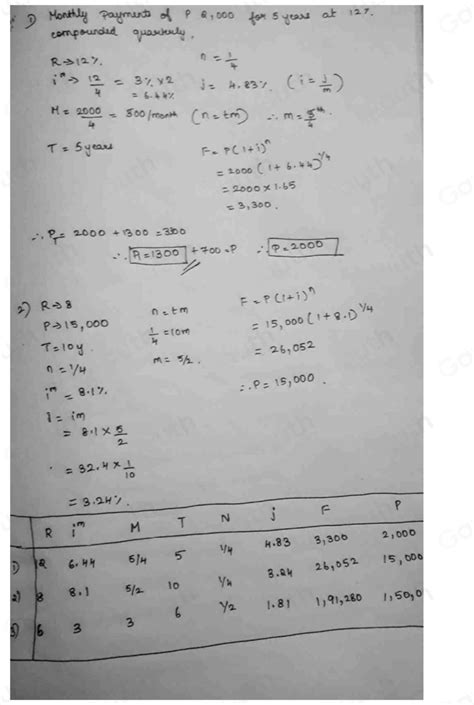 1) Monthly Payments of P 2,000 for 5 years at 12%
compounded quarterly.
R→12%
n = 1/4
i^m → 12/4 = 3% × 2
= 6.44%
j = 4.83% (i = j/m)
M = 2000/4 = 500/month (n = tm) ∴ m = 5/4
T = 5 years
F = P(1+i)^n
= 2000 (1 + 6.44)^1/4
= 2000 × 1.65
= 3,300.
= 2000 + 1300 = 3300
∴ R = 1300 + 700 = P ∴ P = 2000
2) R→8
P→15,000
T = 10y.
n = 1/4
i^m = 8.1%
j = im
= 8.1 × 5/2
= 32.4 × 1/10
= 3.24%.
n = tm
1/4 = 10m
m = 5/2.
F = P(1+i)^n
= 15,000 (1 + 8.1)^1/4
= 26,052
∴ P = 15,000.
R i^m M T N j F P
1) 12 6.44 5/4 5 1/4 4.83 3,300 2,000
2) 8 8.1 5/2 10 1/4 3.24 26,052 15,000
3) 6 3 3 6 1/2 1.81 1,91,280 1,50,0